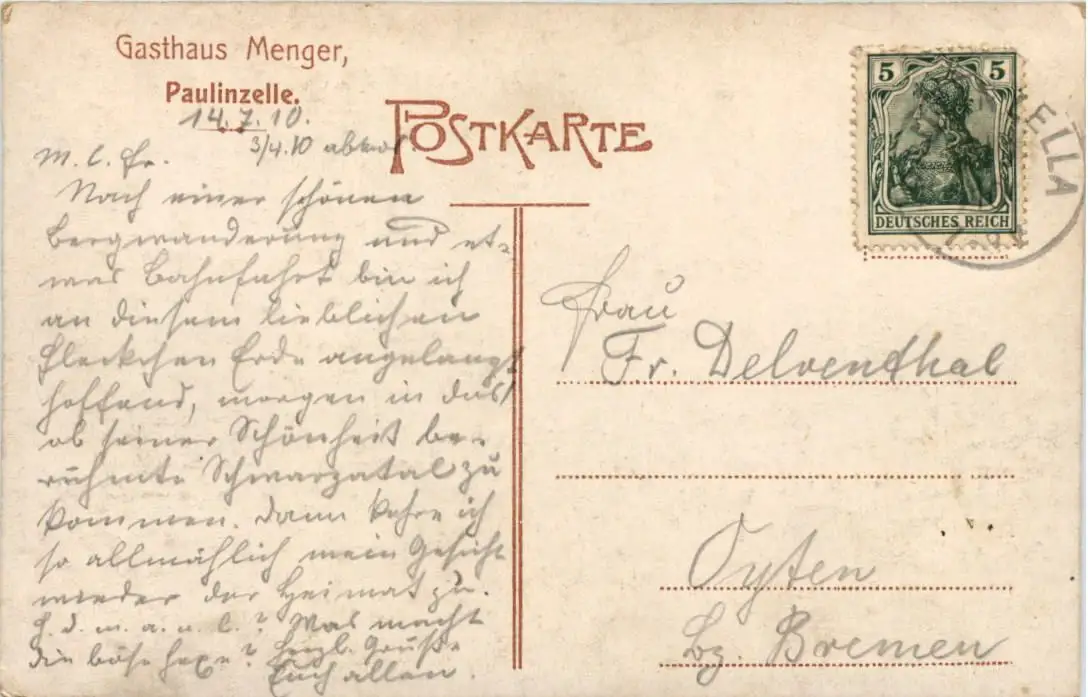 Gasthaus Menger,
Paulinzelle.
POSTKARTE
14.7.10.
3/4.10
M. l. Fr.
Nach einer schönen
Bergwanderung und et-
was Bahnfahrt bin ich
an diesem lieblichen
Fleckchen Erde angelangt
hoffend, morgen in das
ob seiner Schönheit be-
rühmte Schwarzatal zu
kommen. Dann kehre ich
so allmählich mein Gesicht
wieder der Heimat zu.
H. d. m. a. n. l.? Was macht
die böse Hexe? Herzl. Grüße
Euch allen.
5 5
DEUTSCHES REICH
ZELLA
Frau
Fr. Delventhal
Oyten
Bz. Bremen